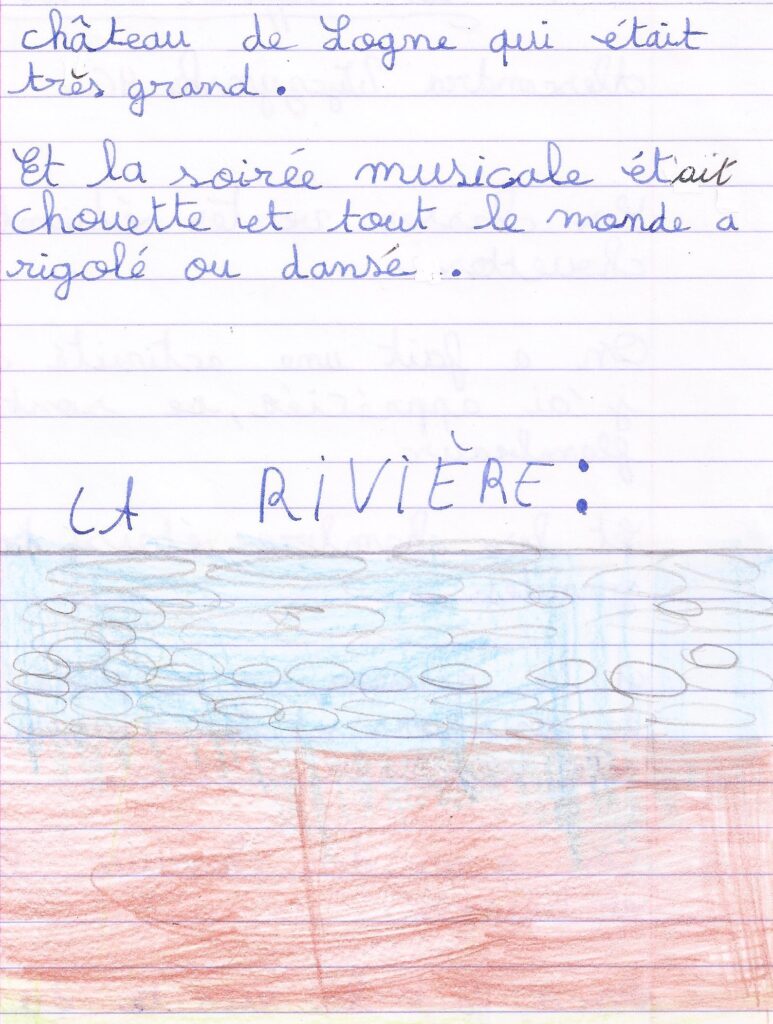 château de Logne qui était
très grand.
Et la soirée musicale était
chouette et tout le monde a
rigolé ou dansé.
LA RIVIÈRE: